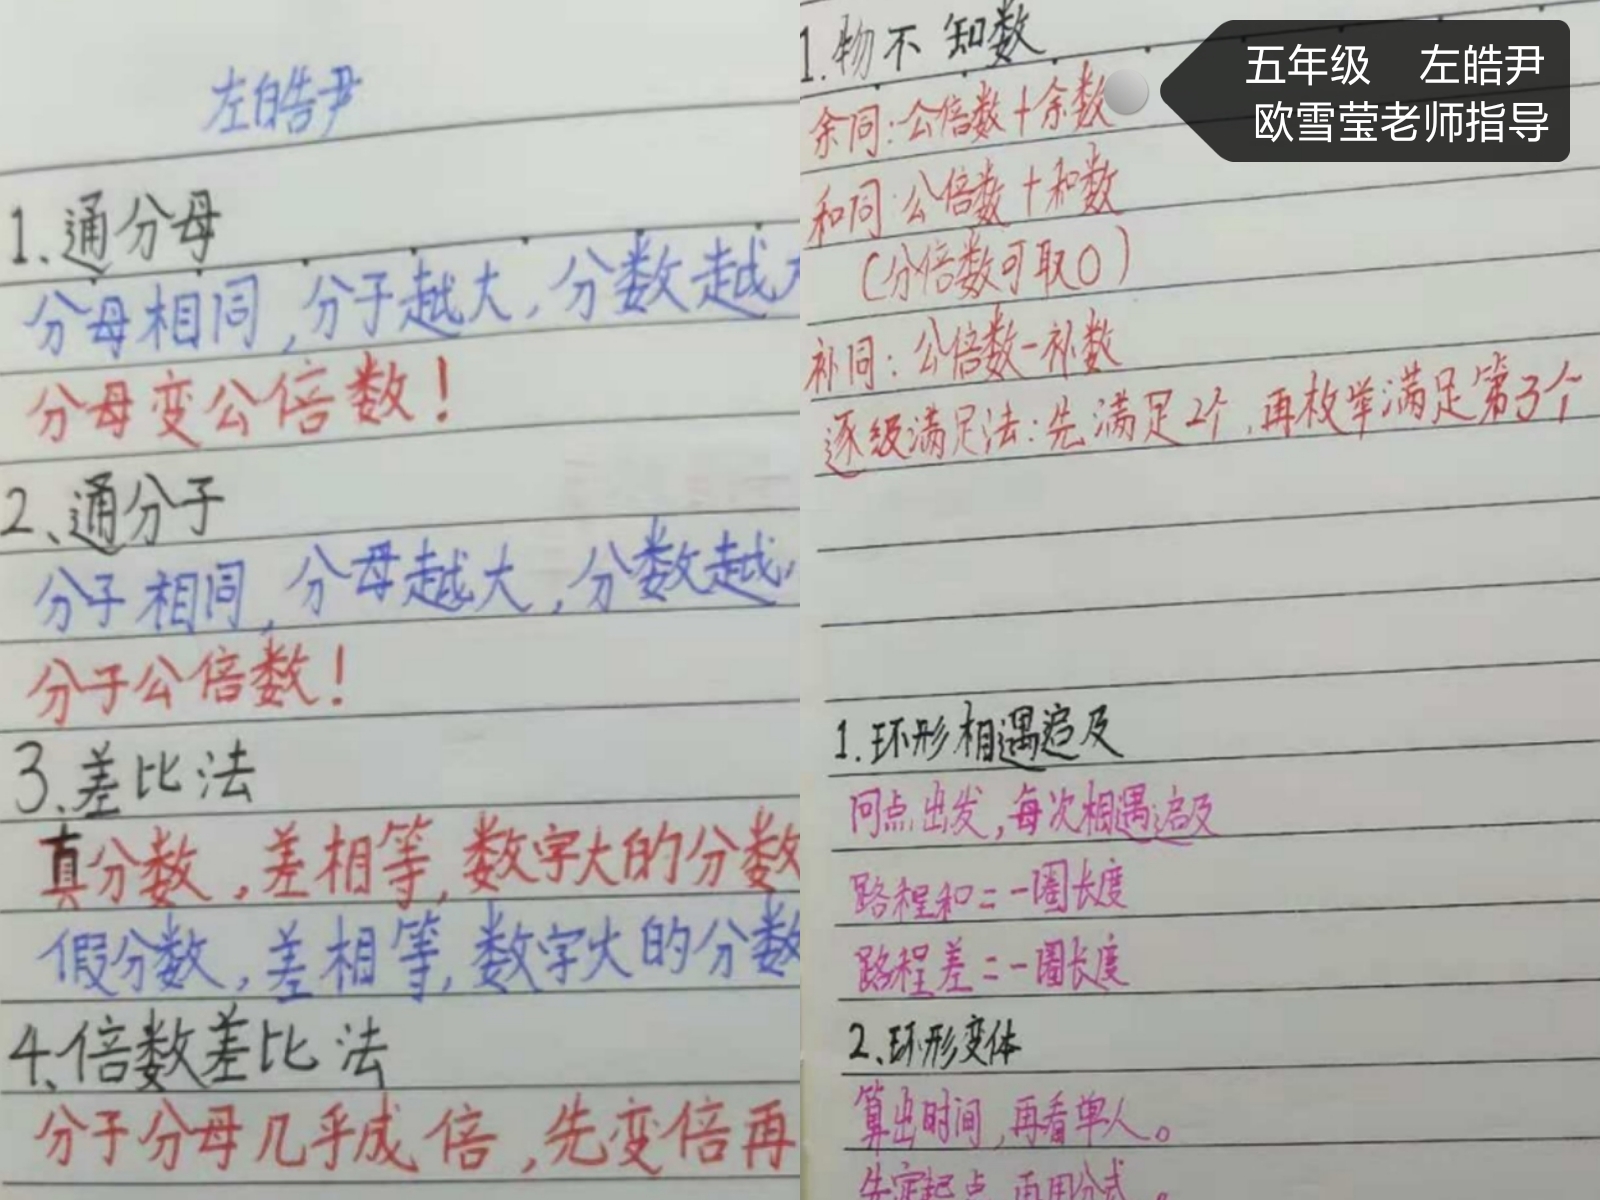 左皓尹
1.通分母
分母相同,分子越大,分数越大
分母变公倍数!
2、通分子
分子相同,分母越大,分数越
分子公倍数!
3、差比法
真分数,差相等,数字大的分数
假分数,差相等,数字大的分数
4、倍数差比法
分子分母几乎成倍,先变倍再
1.物不知数
余同:公倍数+余数
和同:公倍数+和数
(公倍数可取0)
补同:公倍数-补数
逐级满足法:先满足2个,再枚举满足第3个
1.环形相遇追及
同点出发,每次相遇追及
路程和=一圈长度
路程差=一圈长度
2、环形变体
算出时间,再看单人。
先定起点,再用公式。
五年级 左皓尹
欧雪莹老师指导